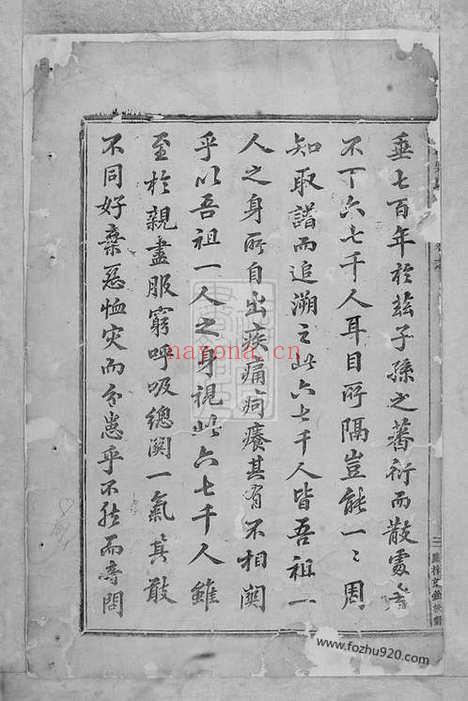 垂七百年於茲子孫之蕃衍而散處者
不下六七千人耳目所隔豈能一一周
知取譜而追溯之此六七千人皆吾祖一
人之身所自出疾痛疴癢其有不相關
乎以吾祖一人之身視此六七千人雖
至於親盡服窮呼吸總關一氣其敢
不同好棄惡恤災而分患乎不然而音問
nayona.cn
www.fozhu920.com